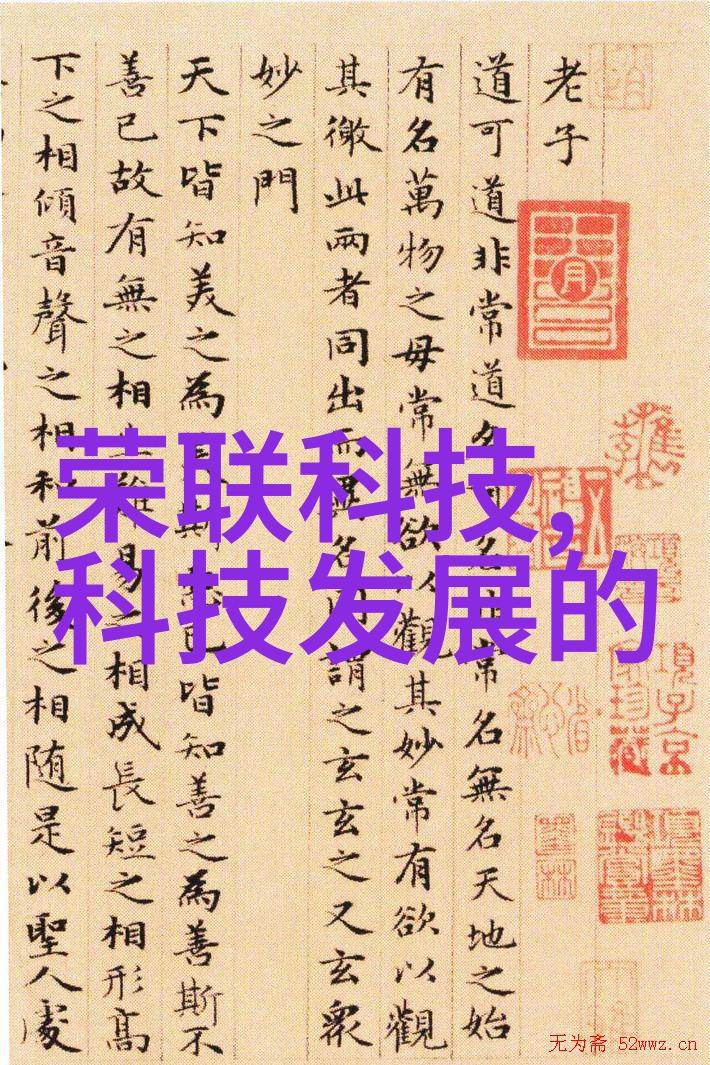 老子
道可道非常道名可名非常名無名天地之始
有名萬物之母常無欲以觀其妙常有欲以觀
其徼此兩者同出而異名同謂之玄玄之又玄衆
妙之門
天下皆知美之為美斯惡已皆知善之為善斯不
善已故有無之相生難易之相成長短之相形高
下之相傾音聲之相和前後之相随是以聖人處
荣联科技,
科技发展的
无为斋 52wwz.cn